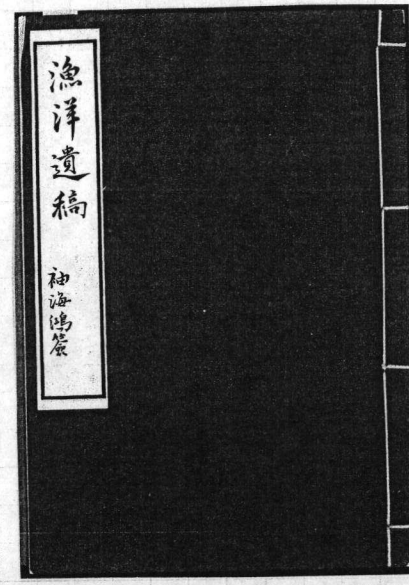 漁洋遺稿
袖海鴻簽